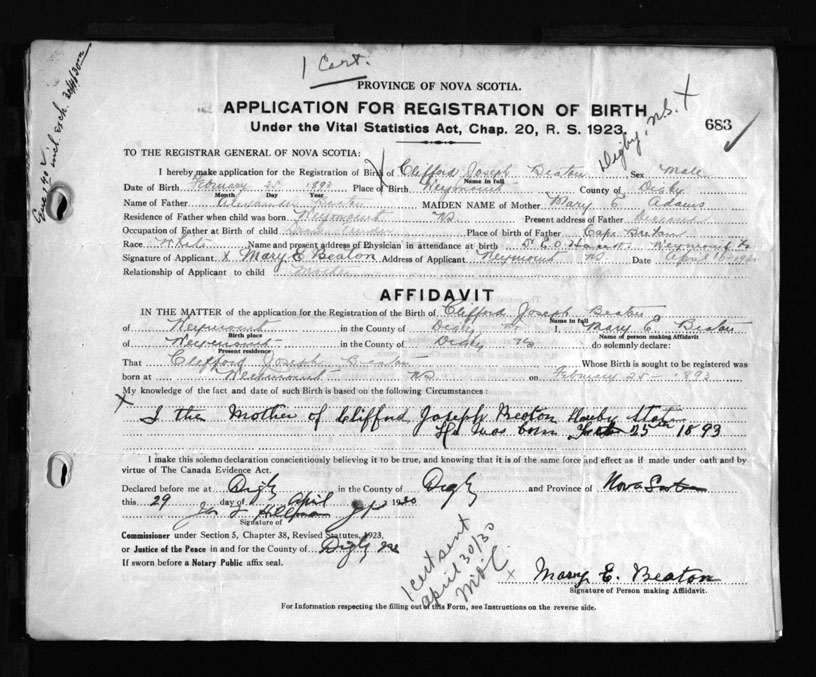 1 Cert.
PROVINCE OF NOVA SCOTIA.
APPLICATION FOR REGISTRATION OF BIRTH
Under the Vital Statistics Act, Chap. 20, R. S. 1923.
Digby, N.S. X
683 ✓
TO THE REGISTRAR GENERAL OF NOVA SCOTIA:
I hereby make application for the Registration of Birth of Clifford Joseph Beaton Sex Male
Name in full
Date of Birth February 25 1893 Place of Birth Weymouth County of Digby
Month Day Year
Name of Father Alexander Beaton MAIDEN NAME of Mother Mary E Adams
Residence of Father when child was born Weymouth NS Present address of Father Deceased
Occupation of Father at Birth of child Place of birth of Father Cape Breton
Race White Name and present address of Physician in attendance at birth Dr E. O. Weymouth
Signature of Applicant X Mary E Beaton Address of Applicant Weymouth NS Date April
Relationship of Applicant to child Mother
AFFIDAVIT
IN THE MATTER of the application for the Registration of the Birth of Clifford Joseph Beaton
Name in full
of Weymouth in the County of Digby I, Mary E. Beaton
Birth place Name of person making Affidavit
of Weymouth in the County of Digby NS do solemnly declare:
Present residence
That Clifford Joseph Beaton Whose Birth is sought to be registered was
born at Weymouth NS on February 25 1893
My knowledge of the fact and date of such Birth is based on the following Circumstances:
X I the Mother of Clifford Joseph Beaton
He was born Feb 25th 1893
I make this solemn declaration conscientiously believing it to be true, and knowing that it is of the same force and effect as if made under oath and by
virtue of The Canada Evidence Act.
Declared before me at Digby in the County of Digby and Province of Nova Scotia
this 29 day of April 1930
Signature of
Commissioner under Section 5, Chapter 38, Revised Statutes, 1923,
or Justice of the Peace in and for the County of Digby NS
If sworn before a Notary Public affix seal.
1 cert sent
april 30/30
X Mary E. Beaton
Signature of Person making Affidavit.
For Information respecting the filling out of this Form, see Instructions on the reverse side.